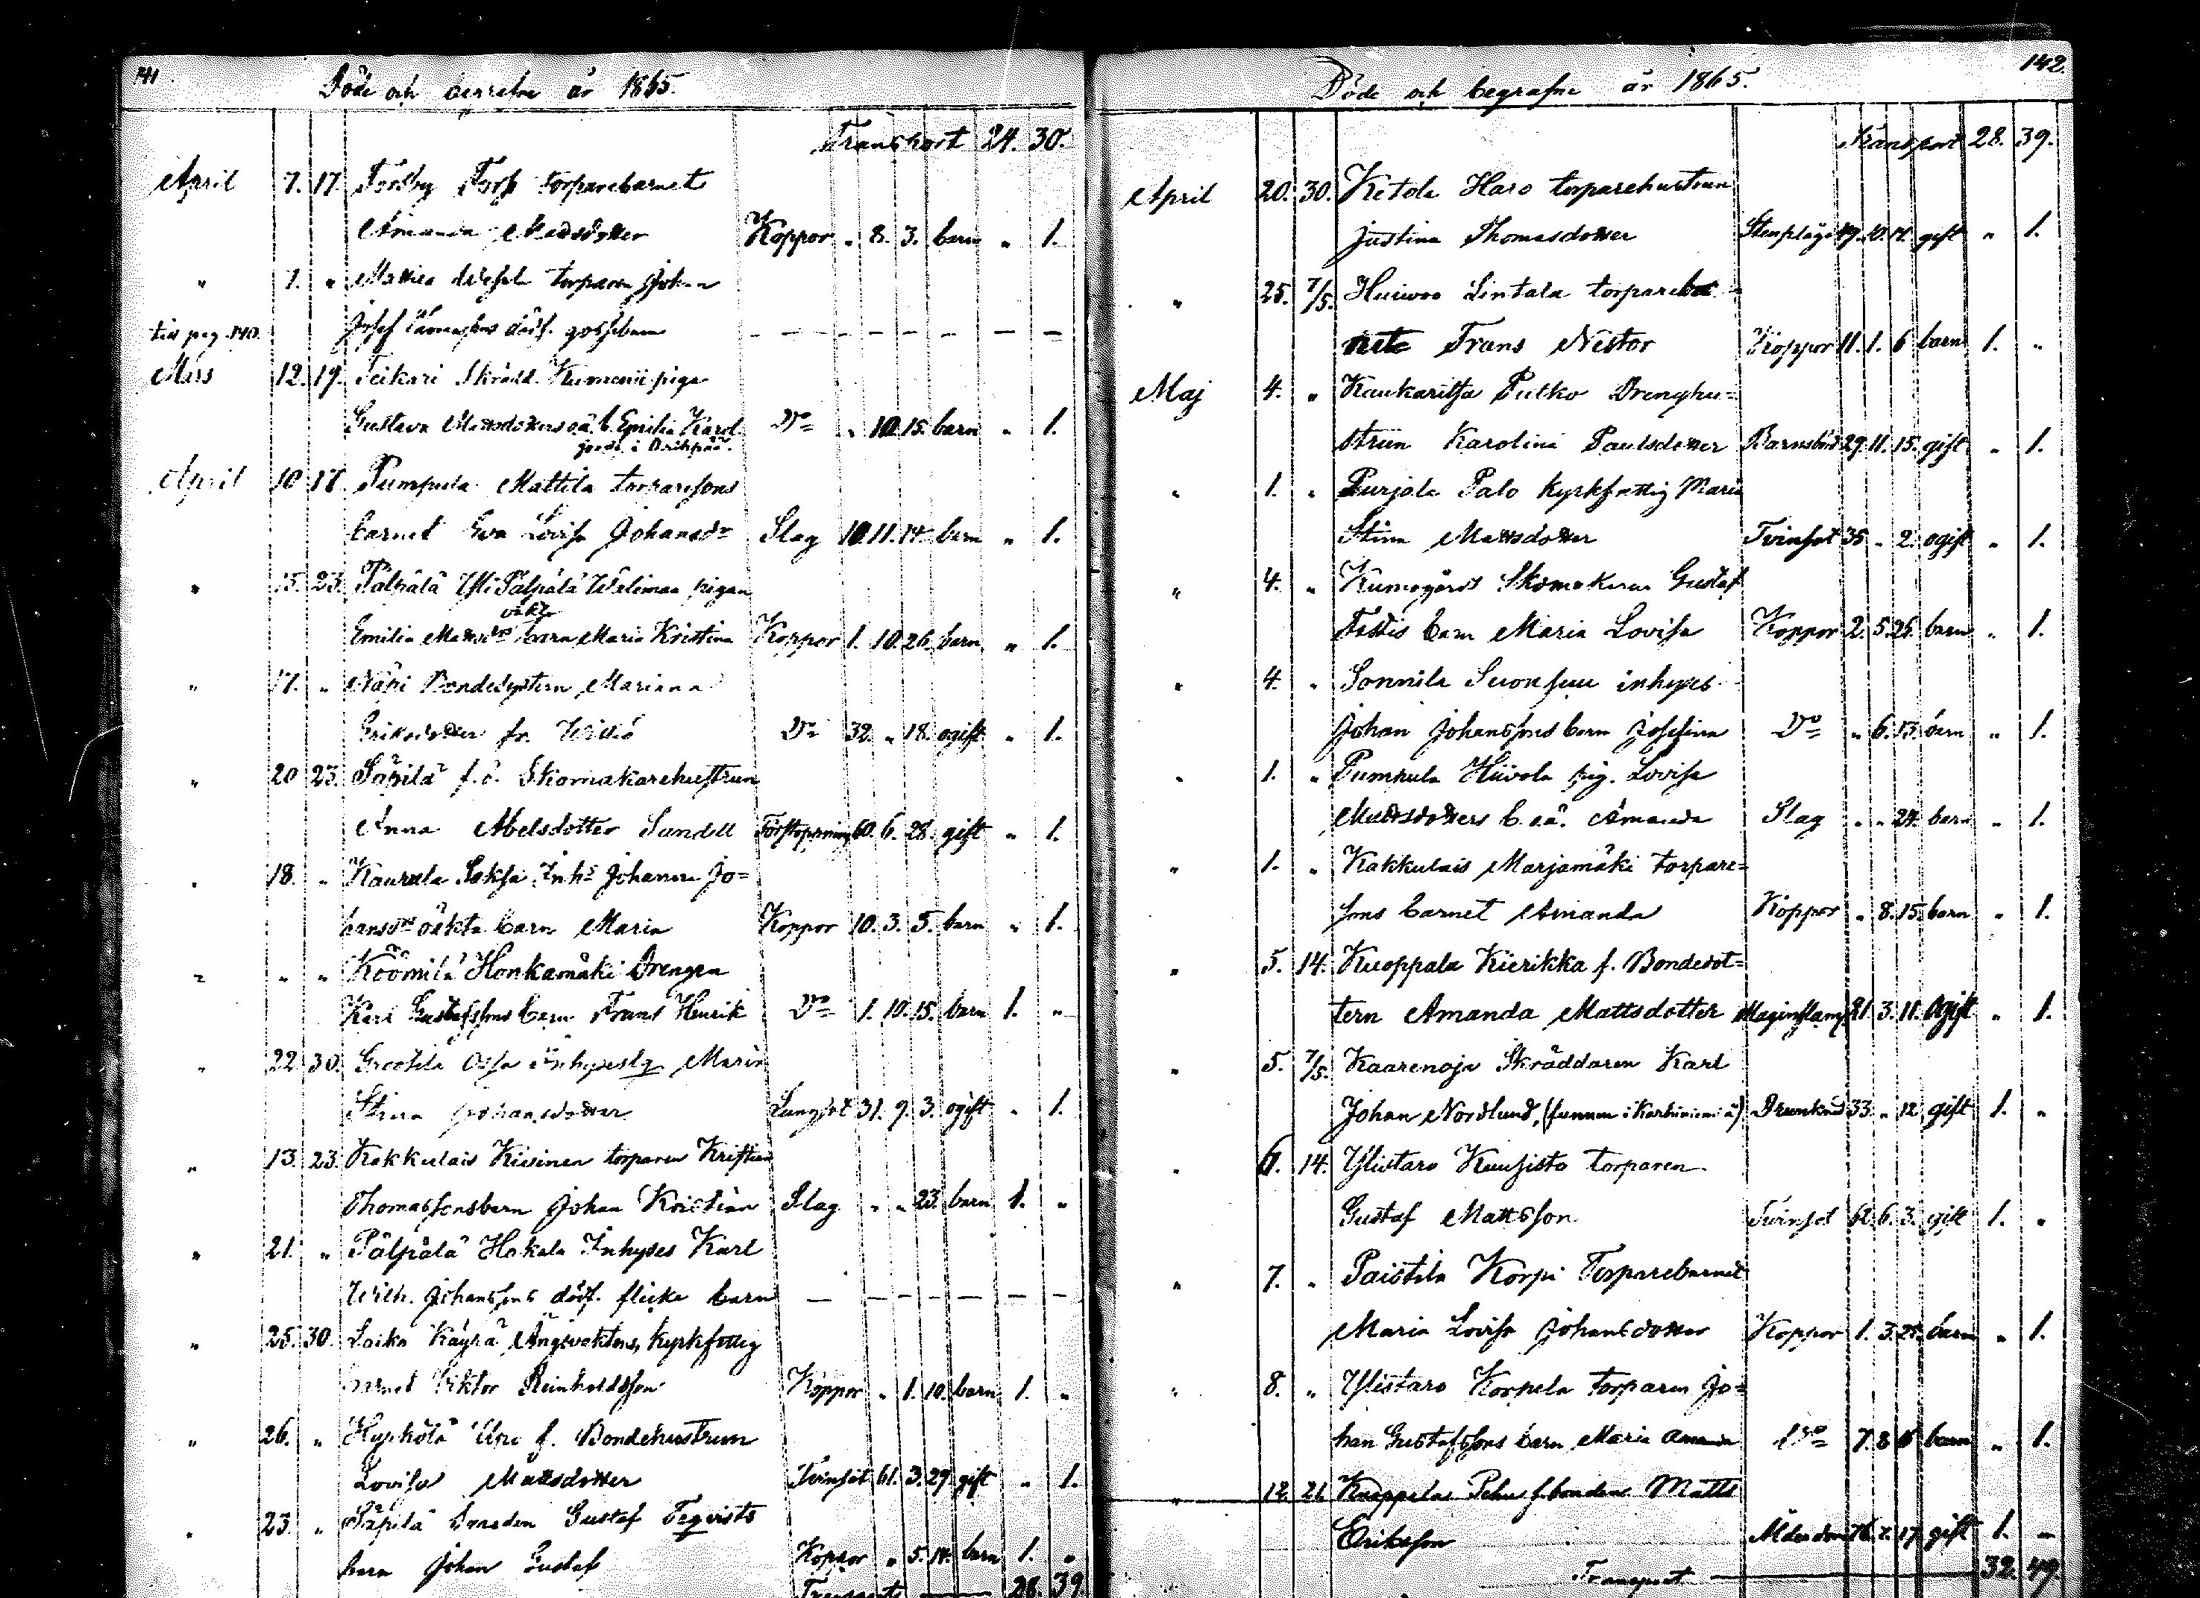 141
Döde och år 1865.
Transport 24. 30.
April 7. 17. Torp torparebarnet
Amanda Koppor " 8. 3. barn " 1.
" 7. " torparen Johan
Josef dödf. gossebarn — — — — — — —
till pag. 140.
Mars 12. 19. Teikari Skrädd. piga
Gustava oä. b. Emilia Karol. Do " 10. 15. barn " 1.
April 10 17 Pumpula Mattila torparesons
barnet Eva Lovisa Johansdr Slag 10. 11. 14. barn " 1.
" 15. 23. Pälpälä Yli Pälpälä pigan
oäkta
Emilia barn Maria Kristina Koppor 1. 10. 26. barn " 1.
" 17. " Näpi Mariana
Eriksdotter Do 32. " 18. ogift " 1.
" 20 23. Säpilä f. d. Skomakarehustrun
Anna Abelsdotter Sundell Förstoppning 60. 6. 28. gift " 1.
" 18. " Inhs Johanna Jo=
hansdr oäkta barn Maria Koppor 10. 3. 5. barn " 1.
" " " Köömilä Honkamäki Drengen
Karl Gustafssons barn Frans Henrik Do 1. 10. 15. barn 1. "
" 22. 30. Maria
Stina Johansdotter Lungsot 31. 9. 3. ogift " 1.
" 13. 23. Kakkulais torparen Kristian
Thomassons barn Johan Kristian Slag " " 23. barn 1. "
" 21. " Pälpälä Hakala Inhyses Karl
Wilh. Johanssons dödf. flicke barn — — — — — — —
" 25. 30. Käyrä kyrkfattig
barnet Viktor Reinholdsson Koppor " 1. 10. barn 1. "
" 26. " f. Bondehustrun
Lovisa Mattsdotter Tvinsot 61. 3. 29. gift " 1.
" 23. " Säpilä Gustaf Tegvists
barn Johan Gustaf Koppor " 5. 14. barn 1. "
Transport 28. 39.
142.
Döde och begrafne år 1865.
Transport 28. 39.
April 20. 30. Ketola Haro torparehustrun
Justina Thomasdotter gift " 1.
" 25. 7/5. Lintala
Frans Nestor Koppor 11. 1. 6 barn 1. "
Maj 4. " Kaukaritsa Pulko Drenghu=
strun Karolina Paulsdotter Barnsbörd 29. 11. 15. gift " 1.
" 1. " Purjala Palo kyrkfattig Maria
Stina Mattsdotter Tvinsot 35 " 2. ogift " 1.
" 4. " Kumogårds Skomakaren Gustaf
barn Maria Lovisa Koppor 2. 5. 25. barn " 1.
" 4. " Sonnila inhyses
Johan Johanssons barn Josefina Do " 6. 13. barn " 1.
" 1. " Pumpula pig. Lovisa
b. oä. Amanda Slag " " 24. barn " 1.
" 1. " Kakkulais Marjamäki torpare=
sons barnet Amanda Koppor " 8. 15. barn " 1.
" 5. 14. Kuoppala Kierikka f. Bondedot=
tern Amanda Mattsdotter 21. 3. 11. ogift " 1.
" 5. 7/5. Kaarenoja Skräddaren Karl
Johan Nordlund, Drunknad 33. " 12. gift 1. "
" 6. 14. Ylistaro Kuusisto torparen
Gustaf Mattsson Tvinsot 6. 3. gift 1. "
" 7. " Paistila Korpi Torparebarnet
Maria Lovisa Johansdotter Koppor 1. 3. barn " 1.
" 8. " Ylistaro Korpela torparen Jo=
han Gustafssons barn Maria Amanda Do 7. 8 barn " 1.
" 12. 21. f. bonden Matts
Eriksson gift 1. —
Transport 32. 49.